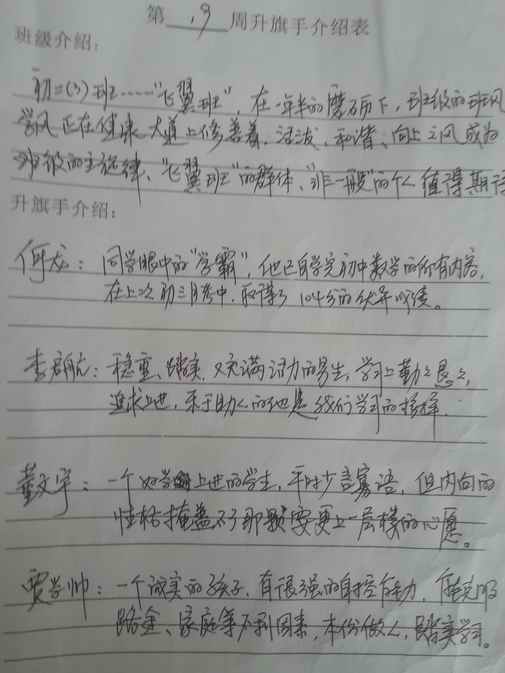 第 19 周升旗手介绍表
班级介绍:
初二(3)班……“飞翼班”,在一年半的磨砺下,班级的班风
学风正在健康大道上修善着,活泼、和谐、向上之风成为
班级的主旋律、“飞翼班”的群体、“非一般”的个人值得期待
升旗手介绍:
何龙: 同学眼中的“学霸”,他已自学完初中数学的所有内容,
在上次初三月考中,取得了104分的优异成绩。
李启航: 稳重、踏实,又充满活力的男生,学习上勤勤恳恳,
追求上进,乐于助人的他是我们学习的榜样.
董文宇: 一个好学上进的学生,平时少言寡语,但内向的
性格掩盖不了那颗要更上一层楼的心愿。
贾学帅: 一个诚实的孩子,有很强的自控能力,能克服
路途、家庭等不利因素,本份做人,踏实学习。